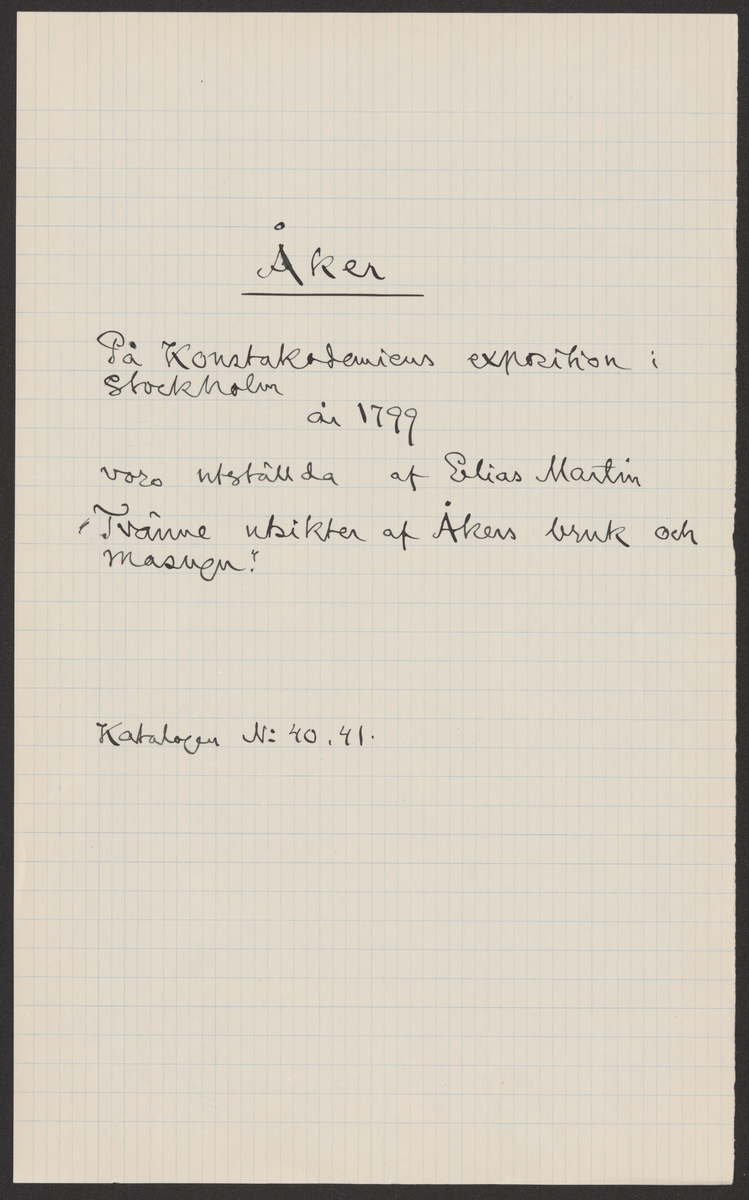 Åker
På Konstakademiens exposition i
Stockholm
år 1799
voro utställda af Elias Martin
"Tvänne utsikter af Åkers bruk och
Masugn."
Katalogen N: 40, 41.